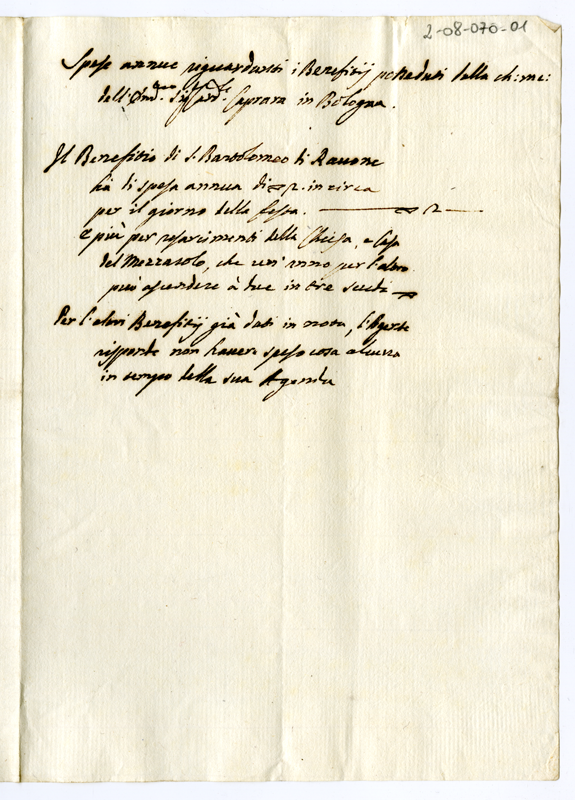 2-08-070-01
Spese annue riguardanti i Benefitij posseduti dalla ch: me:
dell' Em.mo Sig.r Card.le Caprara in Bologna.
Il Benefitio di S. Bartolomeo di Rauone
hà di spesa annua di 2. in circa
per il giorno della festa. 2
e più per risarcimenti della Chiesa, e Casa
del Mezzarolo, che un' anno per l'altro
può ascendere à due in tre scudi
Per l'altri Benefitij già dati in nota, l'Agente
risponde non hauere speso cosa alcuna
in tempo della sua Agenda